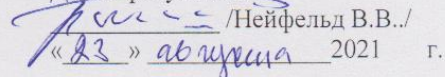 /Нейфельд В.В../
«23» августа 2021 г.